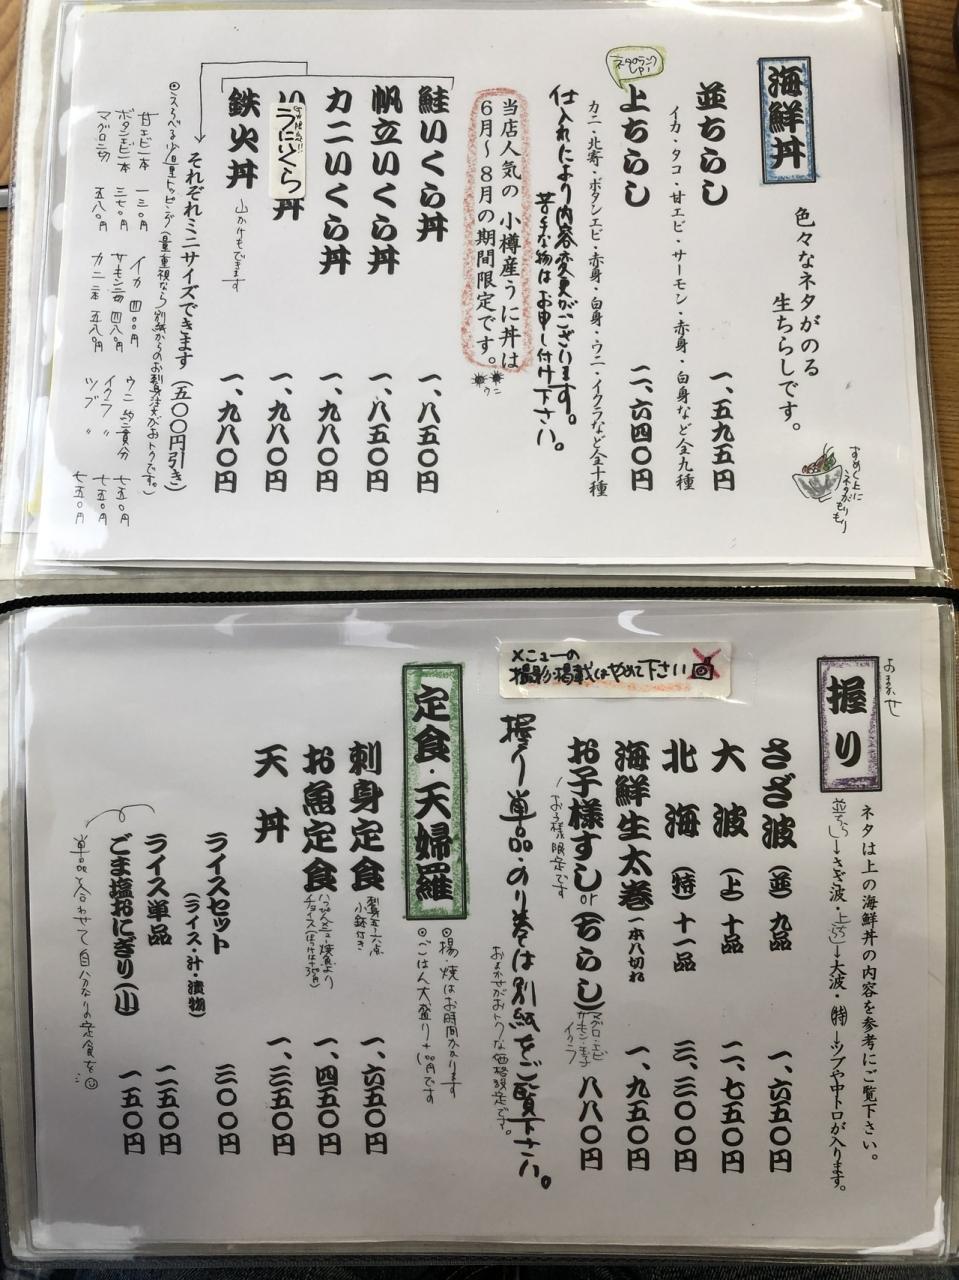 海鮮丼
色々なネタがのる
生ちらしです。
すめし上に
ネタがもりもり
並ちらし 一、五九五円
イカ・タコ・甘エビ・サーモン・赤身・白身など全九種
ネタランクUP!
上ちらし 二、六四〇円
カニ・北寄・ボタンエビ・赤身・白身・ウニ・イクラなど全十種
仕入れにより内容変更がございます。
苦手な物はお申し付け下さい。
当店人気の 小樽産うに丼は
6月～8月の期間限定です。
ウニ
鮭いくら丼 一、八五〇円
帆立いくら丼 一、八五〇円
カニいくら丼 一、九八〇円
うにいくら丼 一、九八〇円
鉄火丼 一、九八〇円
山かけもできます
それぞれミニサイズできます(五〇〇円引き)
◎えらべる少量トッピング(量重視なら別紙からのお刺身注文がおトクです。)
甘エビ一本 一三〇円 イカ 四〇〇円 ウニ 約一貫分 七五〇円
ボタンエビ一本 三七〇円 サーモン二切 四八〇円 イクラ 〃 七五〇円
マグロ二切 五八〇円 カニ二本 五八〇円 ツブ 〃 七五〇円
おまかせ
握り
ネタは上の海鮮丼の内容を参考にご覧下さい。
並ちらし→さざ波・上ちらし→大波・(特)→ツブや中トロが入ります。
さざ波(並)九品 一、六五〇円
大波(上)十品 二、七五〇円
北海(特)十一品 三、三〇〇円
海鮮生太巻 一本八切れ 一、九五〇円
お子様すしor(ちらし) 八八〇円
マグロ・エビ
サーモン・玉子
イクラ
お子様限定です
メニューの
撮影・掲載はやめて下さい
握り単品・のり巻きは別紙をご覧下さい。
おまかせがおトクな価格設定です。
定食・天婦羅
◎揚・焼はお時間かかります
◎ごはん大盛り+100円です
刺身定食 一、六五〇円
刺身五～六点
小鉢付き
お魚定食 一、四五〇円
天丼 一、三五〇円
ライスセット 三〇〇円
(ライス・汁・漬物)
ライス単品 二五〇円
ごま塩おにぎり(小) 一五〇円
単品と合わせて自分なりの定食を